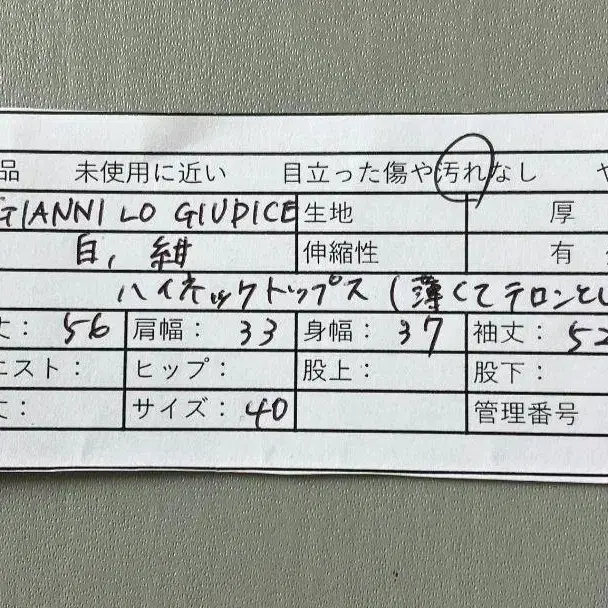 品 未使用に近い 目立った傷や汚れなし
GIANNI LO GIUDICE 生地 厚
白, 紺 伸縮性 有
ハイネックトップス (薄くてテロンとし
丈: 56 肩幅: 33 身幅: 37 袖丈: 52
エスト: ヒップ: 股上: 股下:
丈: サイズ: 40 管理番号